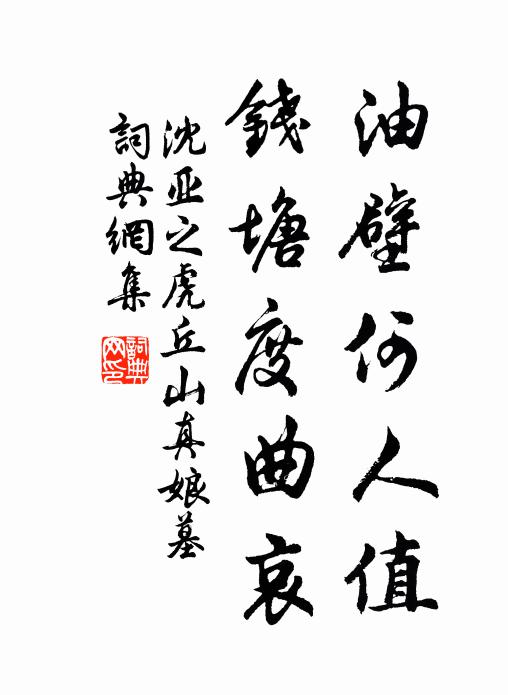 油壁何人值
錢塘度曲哀
沈亚之虎丘山真娘墓
詞典網集
詞典网印